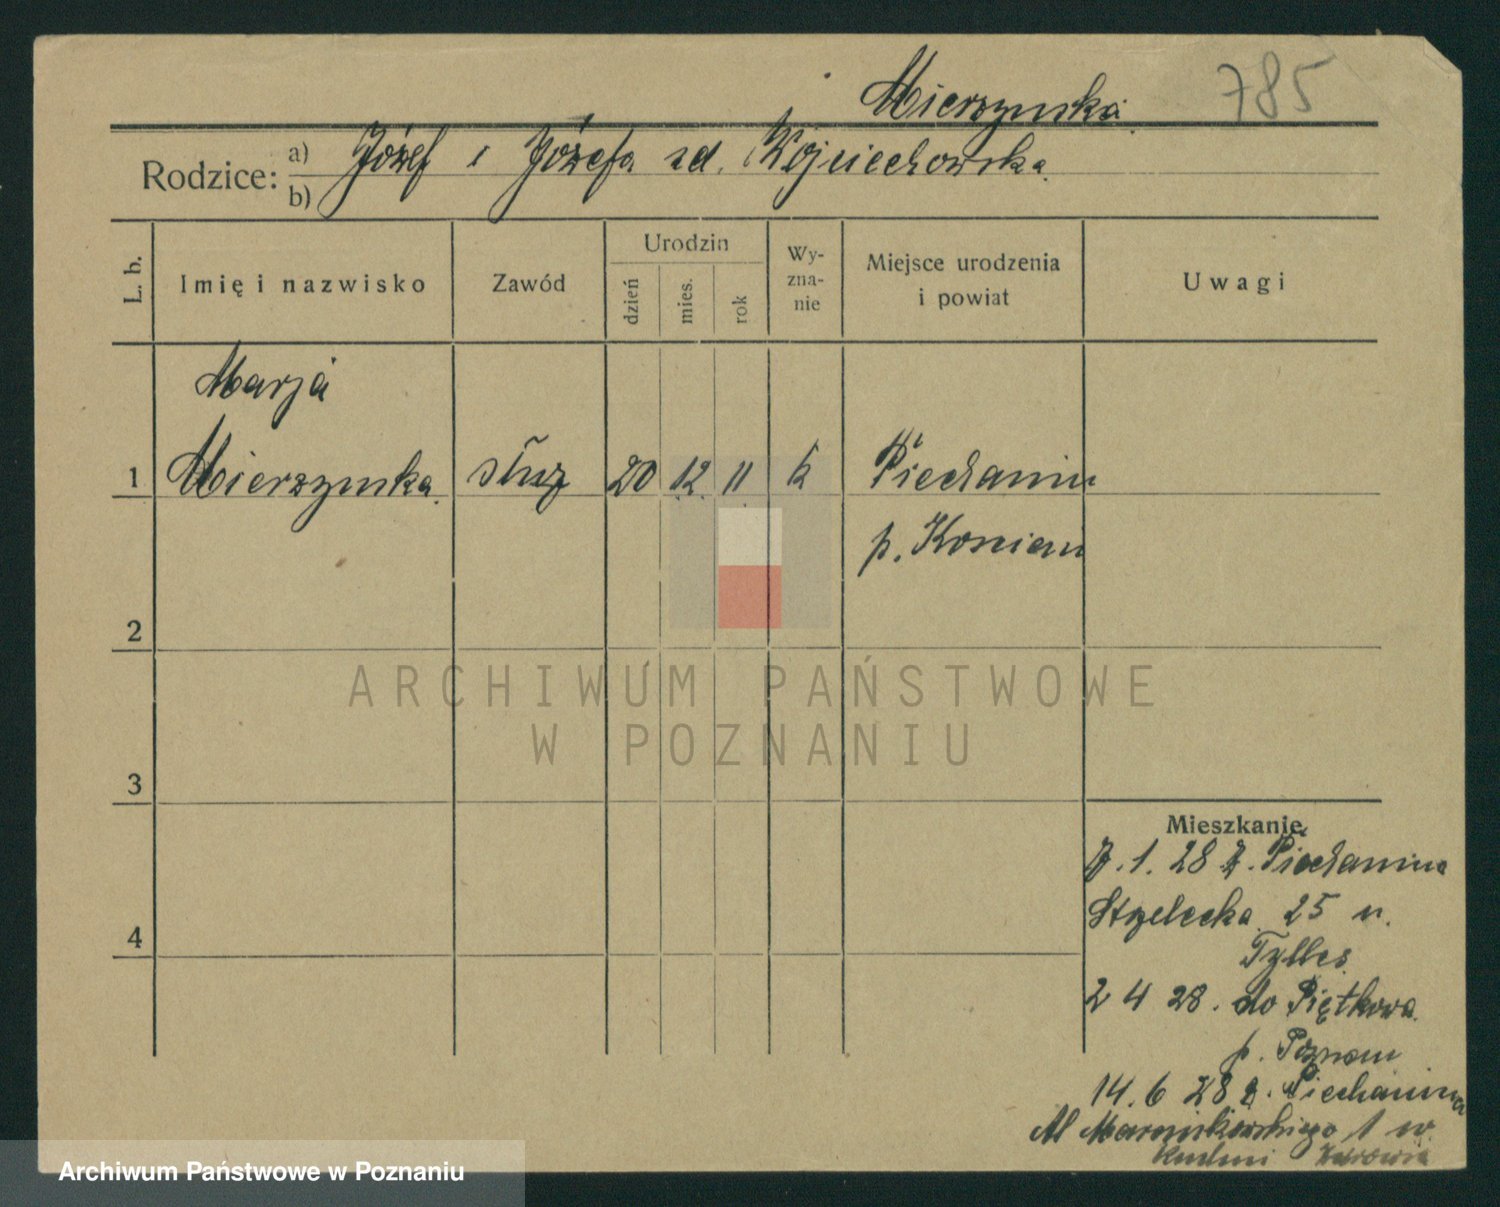 Mierzyńska 785
Rodzice: a) Józef i Józefa zd. Wojciechowska
b)
L. b. Imię i nazwisko Zawód Urodzin dzień mies. rok Wy-zna-nie Miejsce urodzenia i powiat Uwagi
Marja
1 Mierzyńska służ 20 12 11 k Piechanin
p. Kościan
2
ARCHIWUM PAŃSTWOWE
W POZNANIU
3
Mieszkanie
7. 1. 28 z. Piechanina
Strzelecka 25 u.
4
2 4 28. do Piątkowa
p. Poznań
14. 6 28 z. Piechanina
Al Marcinkowskiego 1 w.
Archiwum Państwowe w Poznaniu